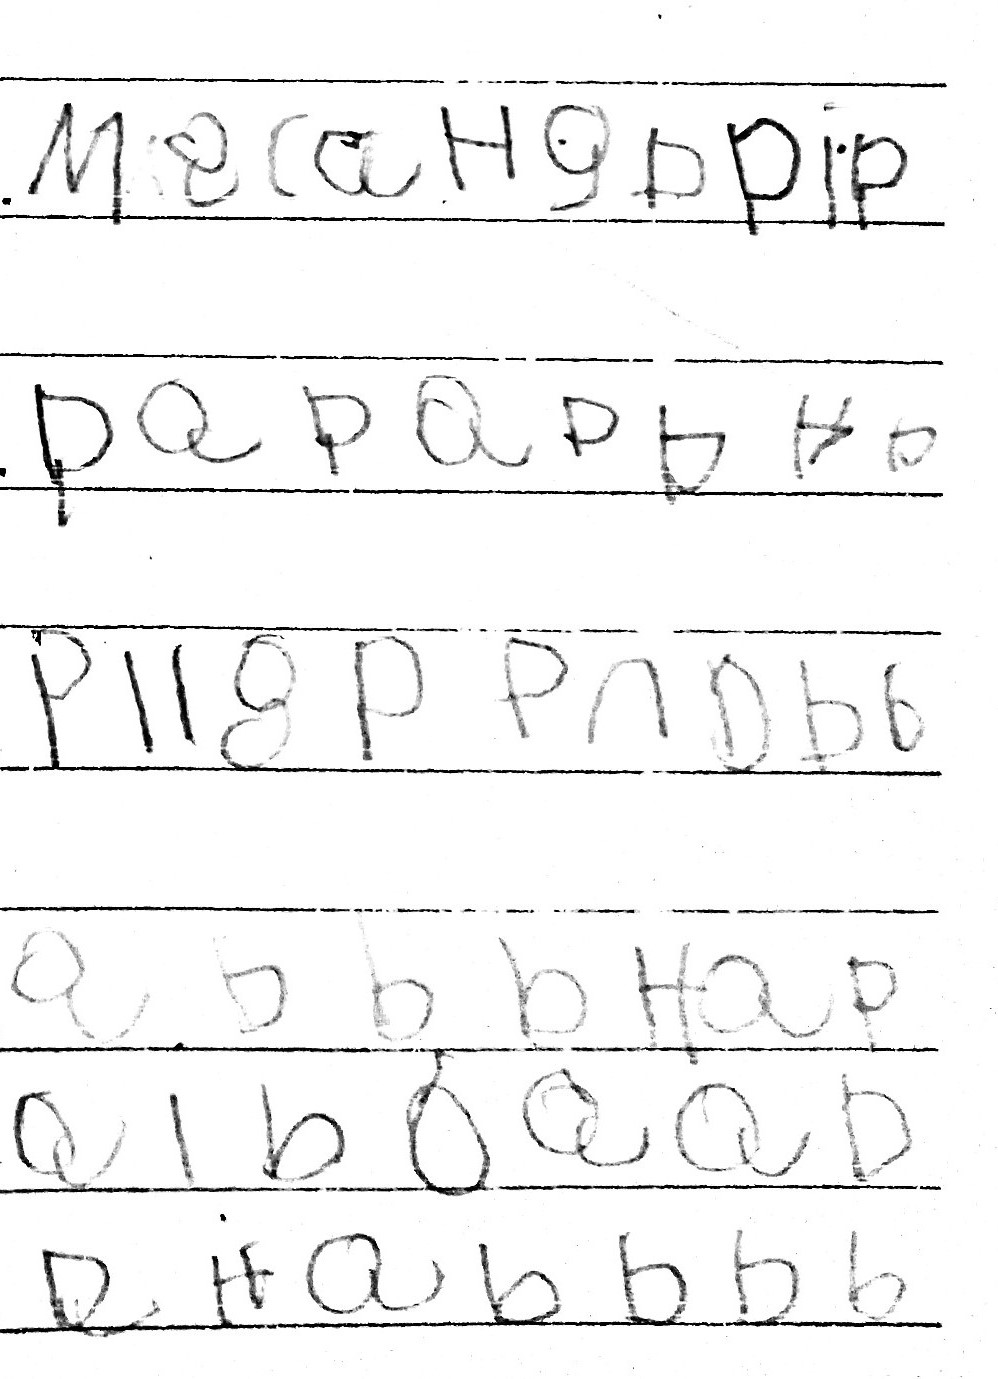 M g c a H g D p i p
p a p a p b H b
p l l g p p n D b b
a b b b H a p
a l b O a a D
D H a b b b b